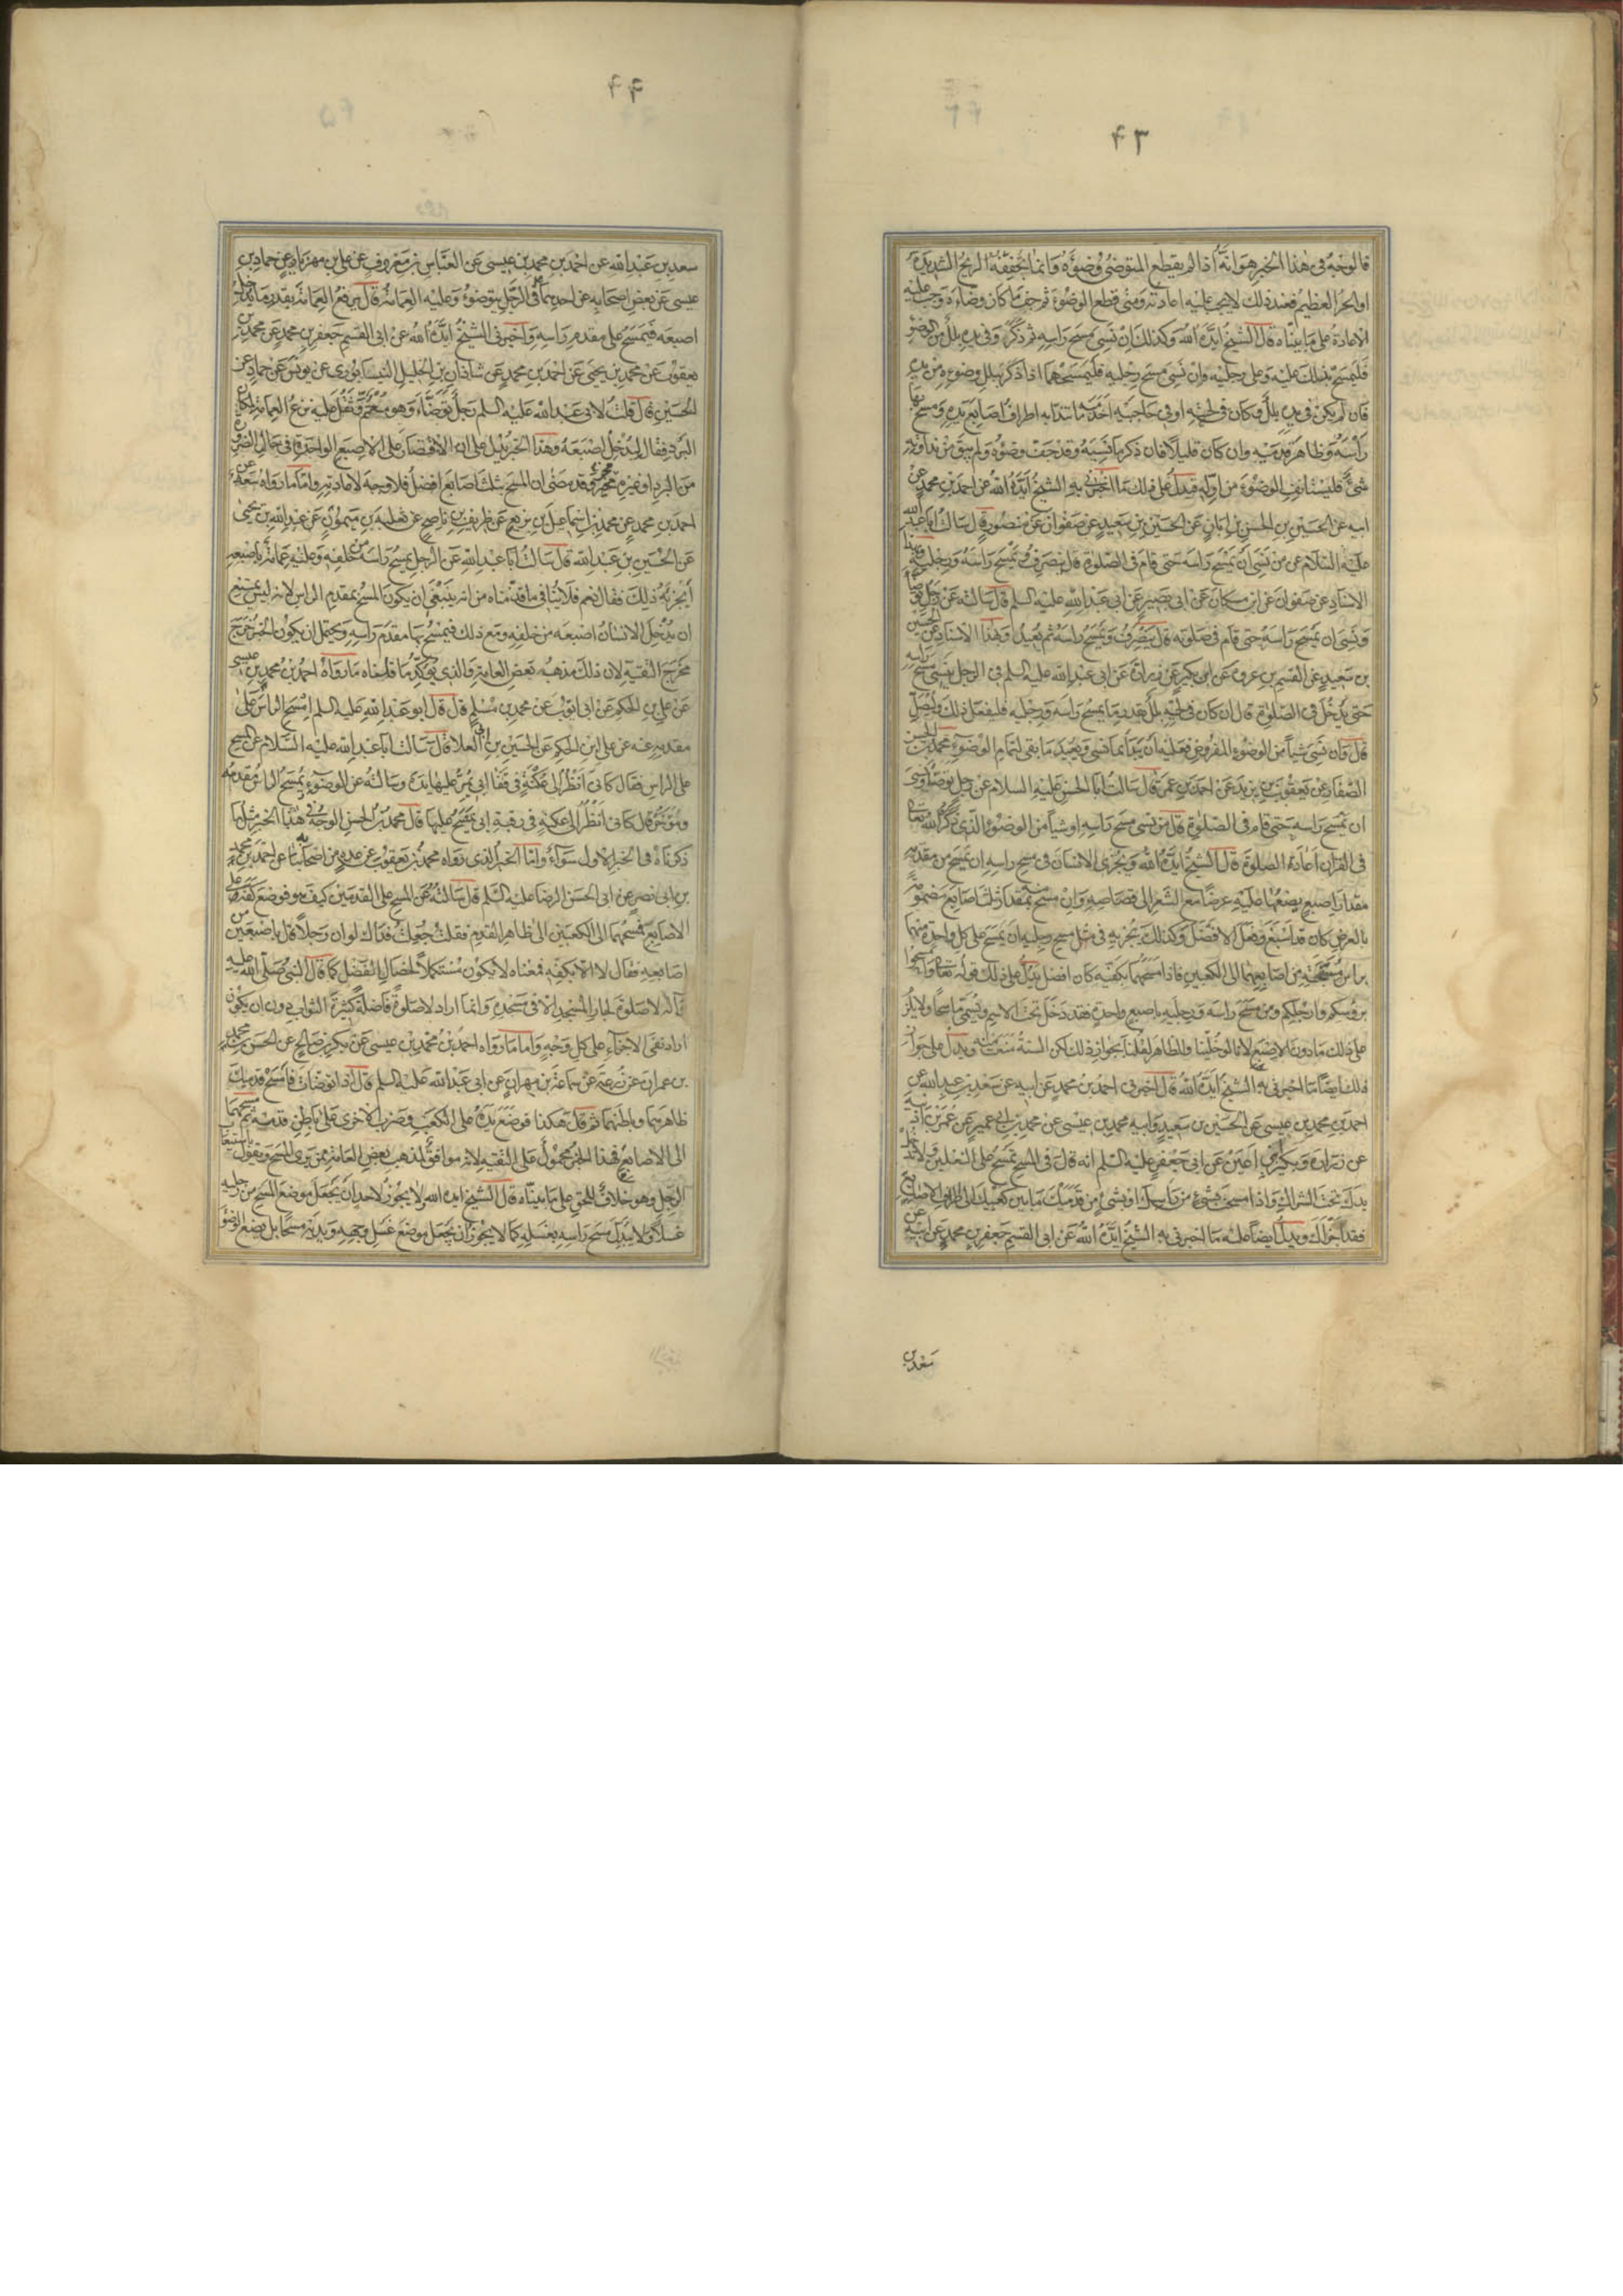 ۴۳
فالوجه فى هذا الخبر هو انه اذا لم يقطع المتوضئ وضوءه وانما يجففه الريح الشديدة
او الحر العظيم فعند ذلك لا يجب عليه اعادته ومتى قطع الوضوء ثم جف ما كان وضاءه وجب عليه
الاعادة على ما بيناه قال الشيخ ايده الله وكذلك ان نسى مسح راسه ثم ذكر وفى يده بلل من الوضوء
فليمسح بذلك عليه وعلى رجليه وان نسى مسح رجليه فليمسحهما اذا ذكر ببلل وضوءه من يده
فان لم يكن فى يده بلل وكان فى لحيته او فى حاجبيه اخذ منه ما تندا به اطراف اصابع يديه ومسح بها
راسه وظاهر قدميه وان كان قليلا فان ذكر ما نسيه وقد جف وضوءه ولم يبق من نداوته
شئ فليستانف الوضوء من اوله فيدل على ذلك ما اخبرنى به الشيخ ايده الله عن احمد بن محمد عن
ابيه عن الحسين بن الحسن بن ابان عن الحسين بن سعيد عن صفوان عن منصور قال سالت ابا عبد الله
عليه السلام عن من نسى ان يمسح راسه حتى قام فى الصلوة قال ينصرف ويمسح راسه ورجليه وبهذا
الاسناد عن صفوان عن ابن مسكان عن ابى بصير عن ابى عبد الله عليه السلم قال سالته عن رجل توضا
ونسى ان يمسح راسه حتى قام فى صلوته قال ينصرف ويمسح راسه ثم يعيد وبهذا الاسناد عن الحسين
بن سعيد عن القسم بن عروة عن ابن بكير عن زرارة عن ابى عبد الله عليه السلم فى الرجل ينسى مسح راسه
حتى يدخل فى الصلوة قال ان كان فى لحيته بلل بقدر ما يمسح راسه ورجليه فليفعل ذلك وليصل
قال وان نسى شيأ من الوضوء المفروض فعليه ان يبدأ بما نسى ويعيد ما بقى لتمام الوضوء محمد بن الحسن
الصفار عن يعقوب بن يزيد عن احمد بن عمر قال سالت ابا الحسن عليه السلام عن رجل توضا ونسى
ان يمسح راسه حتى قام فى الصلوة قال من نسى مسح راسه او شيأ من الوضوء الذى ذكره الله تعالى
فى القرآن اعاد الصلوة قال الشيخ ايده الله ويجزى الانسان فى مسح راسه ان يمسح من مقدمه
مقدار اصبع يضعها عليه عرضا مع الشعر الى قصاصه وان مسح منه بمقدار ثلث اصابع مضمومة
بالعرض كان قد اسبغ وفعل الافضل وكذلك يجزيه فى مثل مسح رجليه ان يمسح على كل واحدة منهما
براس مسبحته من اصابعهما الى الكعبين فاذا مسحهما بكفيه كان افضل يدل على ذلك قوله تعالى وامسحوا
برؤسكم وارجلكم ومن مسح راسه ورجليه باصبع واحدة فقد دخل تحت الاسم ويسمى ماسحا ولا يلزم
على ذلك ما دون الاصبع لانا لو خلينا والظاهر لقلنا بجواز ذلك لكن السنة منعت منه ويدل على جواز
ذلك ايضا ما اخبرنى به الشيخ ايده الله قال اخبرنى احمد بن محمد عن ابيه عن سعد بن عبد الله عن
احمد بن محمد بن عيسى عن الحسين بن سعيد وابيه محمد بن عيسى عن محمد بن ابى عمير عن عمر بن اذينة
عن زرارة وبكير ابنى اعين عن ابى جعفر عليه السلم انه قال فى المسح تمسح على النعلين ولا تدخل
يدك تحت الشراك واذا مسحت بشئ من راسك او بشئ من قدميك ما بين كعبيك الى اطراف الاصابع
فقد اجزاك ويدل ايضا عليه ما اخبرنى به الشيخ ايده الله عن ابى القسم جعفر بن محمد عن ابيه عن
سعد بن
۴۴
سعد بن عبد الله عن احمد بن محمد بن عيسى عن العباس بن معروف عن على بن مهزيار عن حماد بن
عيسى عن بعض اصحابه عن احدهما فى الرجل يتوضؤ وعليه العمامة قال يرفع العمامة بقدر ما يدخل
اصبعه فيمسح على مقدم راسه واخبرنى الشيخ ايده الله عن ابى القسم جعفر بن محمد عن محمد بن
يعقوب عن محمد بن يحيى عن احمد بن محمد عن شاذان بن الخليل النيسابورى عن يونس عن حماد عن
الحسين قال قلت لابى عبد الله عليه السلم رجل توضاء وهو معتم وثقل عليه نزع العمامة لمكان
البرد فقال ليدخل اصبعه وهذا الخبر يدل على ان الاقتصار على الاصبع الواحدة فى حال الضرورة
من البرد او غيره مجزئ وقد مضى ان المسح بثلث اصابع افضل فلا وجه لاعادته واما ما رواه سعد عن
احمد بن محمد عن محمد بن اسماعيل بن بزيع عن ظريف بن ناصح عن ثعلبة بن ميمون عن عبد الله بن يحيى
عن الحسين بن عبد الله قال سالت ابا عبد الله عن الرجل يمسح راسه من خلفه وعليه عمامة باصبعه
أيجزيه ذلك فقال نعم فلا ينافى ما قدمناه من انه ينبغى ان يكون المسح بمقدم الراس لانه ليس يمتنع
ان يدخل الانسان اصبعه من خلفه ومع ذلك فيمسح بها مقدم راسه ويحتمل ان يكون الخبر خرج
مخرج التقية لان ذلك مذهب بعض العامة والذى يؤكد ما قلناه ما رواه احمد بن محمد بن عيسى
عن على بن الحكم عن ابى ايوب عن محمد بن مسلم قال قال ابو عبد الله عليه السلم امسح الراس على
مقدمه عنه عن على ابن الحكم عن الحسين بن ابى العلا قال سالت ابا عبد الله عليه السلام عن المسح
على الراس فقال كانى انظر الى عكنة فى قفا ابى يمر عليها يده وسالته عن الوضوء يمسح الراس مقدمه
ومؤخره قال كانى انظر الى عكنة فى رقبة ابى يمسح عليها قال محمد بن الحسن الوجه فى هذا الخبر مثل ما
ذكرناه فى الخبر الاول سواء واما الخبر الذى رواه محمد بن يعقوب عن عدة من اصحابنا عن احمد بن محمد
بن ابى نصر عن ابى الحسن الرضا عليه السلم قال سالته عن المسح على القدمين كيف هو فوضع كفه على
الاصابع فمسحهما الى الكعبين الى ظاهر القدم فقلت جعلت فداك لو ان رجلا قال باصبعين من
اصابعه فقال لا الا بكفه فمعناه لا يكون مستكملا لخصال الفضل كما قال النبى صلى الله عليه
وآله لا صلوة لجار المسجد الا فى مسجده وانما اراد لا صلوة فاضلة كثيرة الثواب دون ان يكون
اراد نفى الاجزاء على كل وجه واما ما رواه احمد بن محمد بن عيسى عن بكر بن صالح عن الحسن بن محمد
بن عمران عن زرعة عن سماعة بن مهران عن ابى عبد الله عليه السلم قال اذا توضات فامسح قدميك
ظاهرهما وباطنهما ثم قال هكذا فوضع يده على الكعب وضرب الاخرى على باطن قدميه ثم مسحهما
الى الاصابع فهذا الخبر محمول على التقية لانه موافق لمذهب بعض العامة ممن يرى المسح ويقول باستيعاب
الرجل وهو خلاف للحق على ما بيناه قال الشيخ ايده الله ولا يجوز لاحد ان يجعل موضع المسح من رجليه
غسلا ولا يبدل مسح راسه بغسله كما لا يجوز ان يجعل موضع غسل وجهه ويديه مسحا بل يضع الوضوء